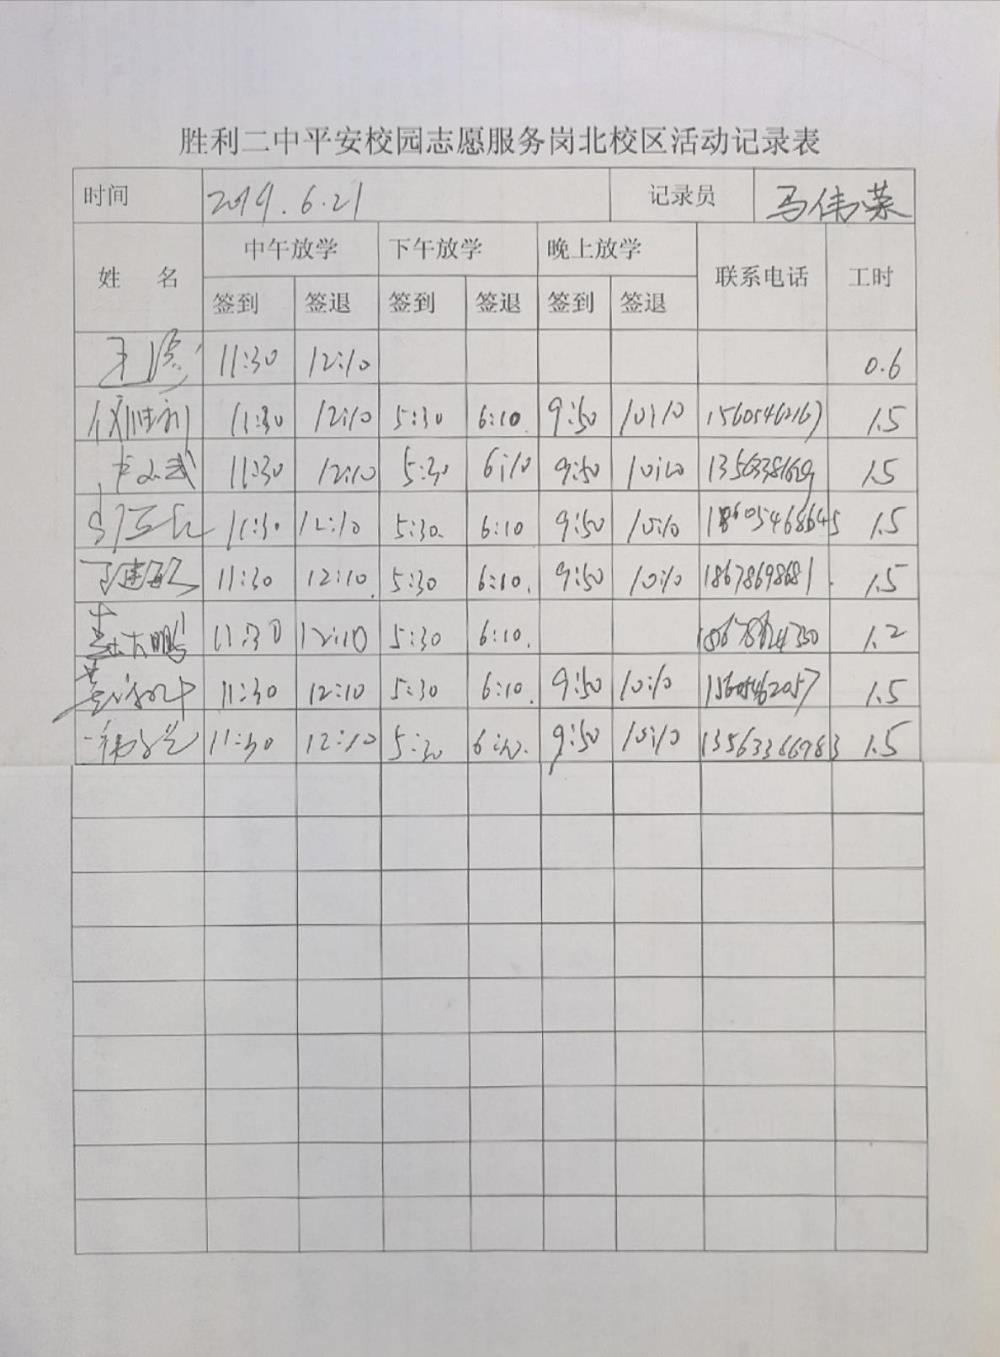 胜利二中平安校园志愿服务岗北校区活动记录表
时间 2019.6.21 记录员 马伟荣
姓 名 中午放学 下午放学 晚上放学 联系电话 工时
签到 签退 签到 签退 签到 签退
11:30 12:10 0.6
刘胜利 11:30 12:10 5:30 6:10 9:50 10:10 15605462167 1.5
11:30 12:10 5:30 6:10 9:50 10:10 1.5
11:30 12:10 5:30 6:10 9:50 10:10 18605468645 1.5
11:30 12:10 5:30 6:10 9:50 10:10 18678698681 1.5
11:30 12:10 5:30 6:10 1.2
11:30 12:10 5:30 6:10 9:50 10:10 15605462057 1.5
11:30 12:10 5:30 6:10 9:50 10:10 13563366983 1.5